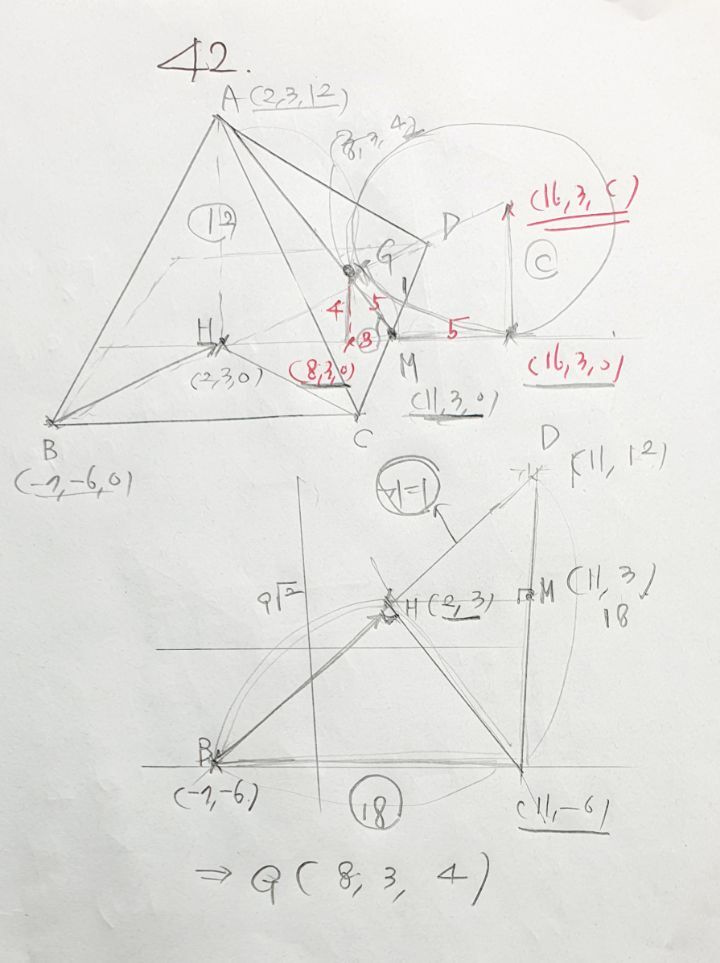 42.
A (2,3,12)
(8,3,4)
12
(16,3,C)
D
G
C
4
5
H
3
5
(2,3,0)
(8,3,0)
M
(16,3,0)
(11,3,0)
B
C
(-7,-6,0)
D
(11,12)
기=1
9√2
H (2,3)
M (11,3)
18
B
(-7,-6)
18
(11,-6)
⇒ G ( 8, 3, 4 )